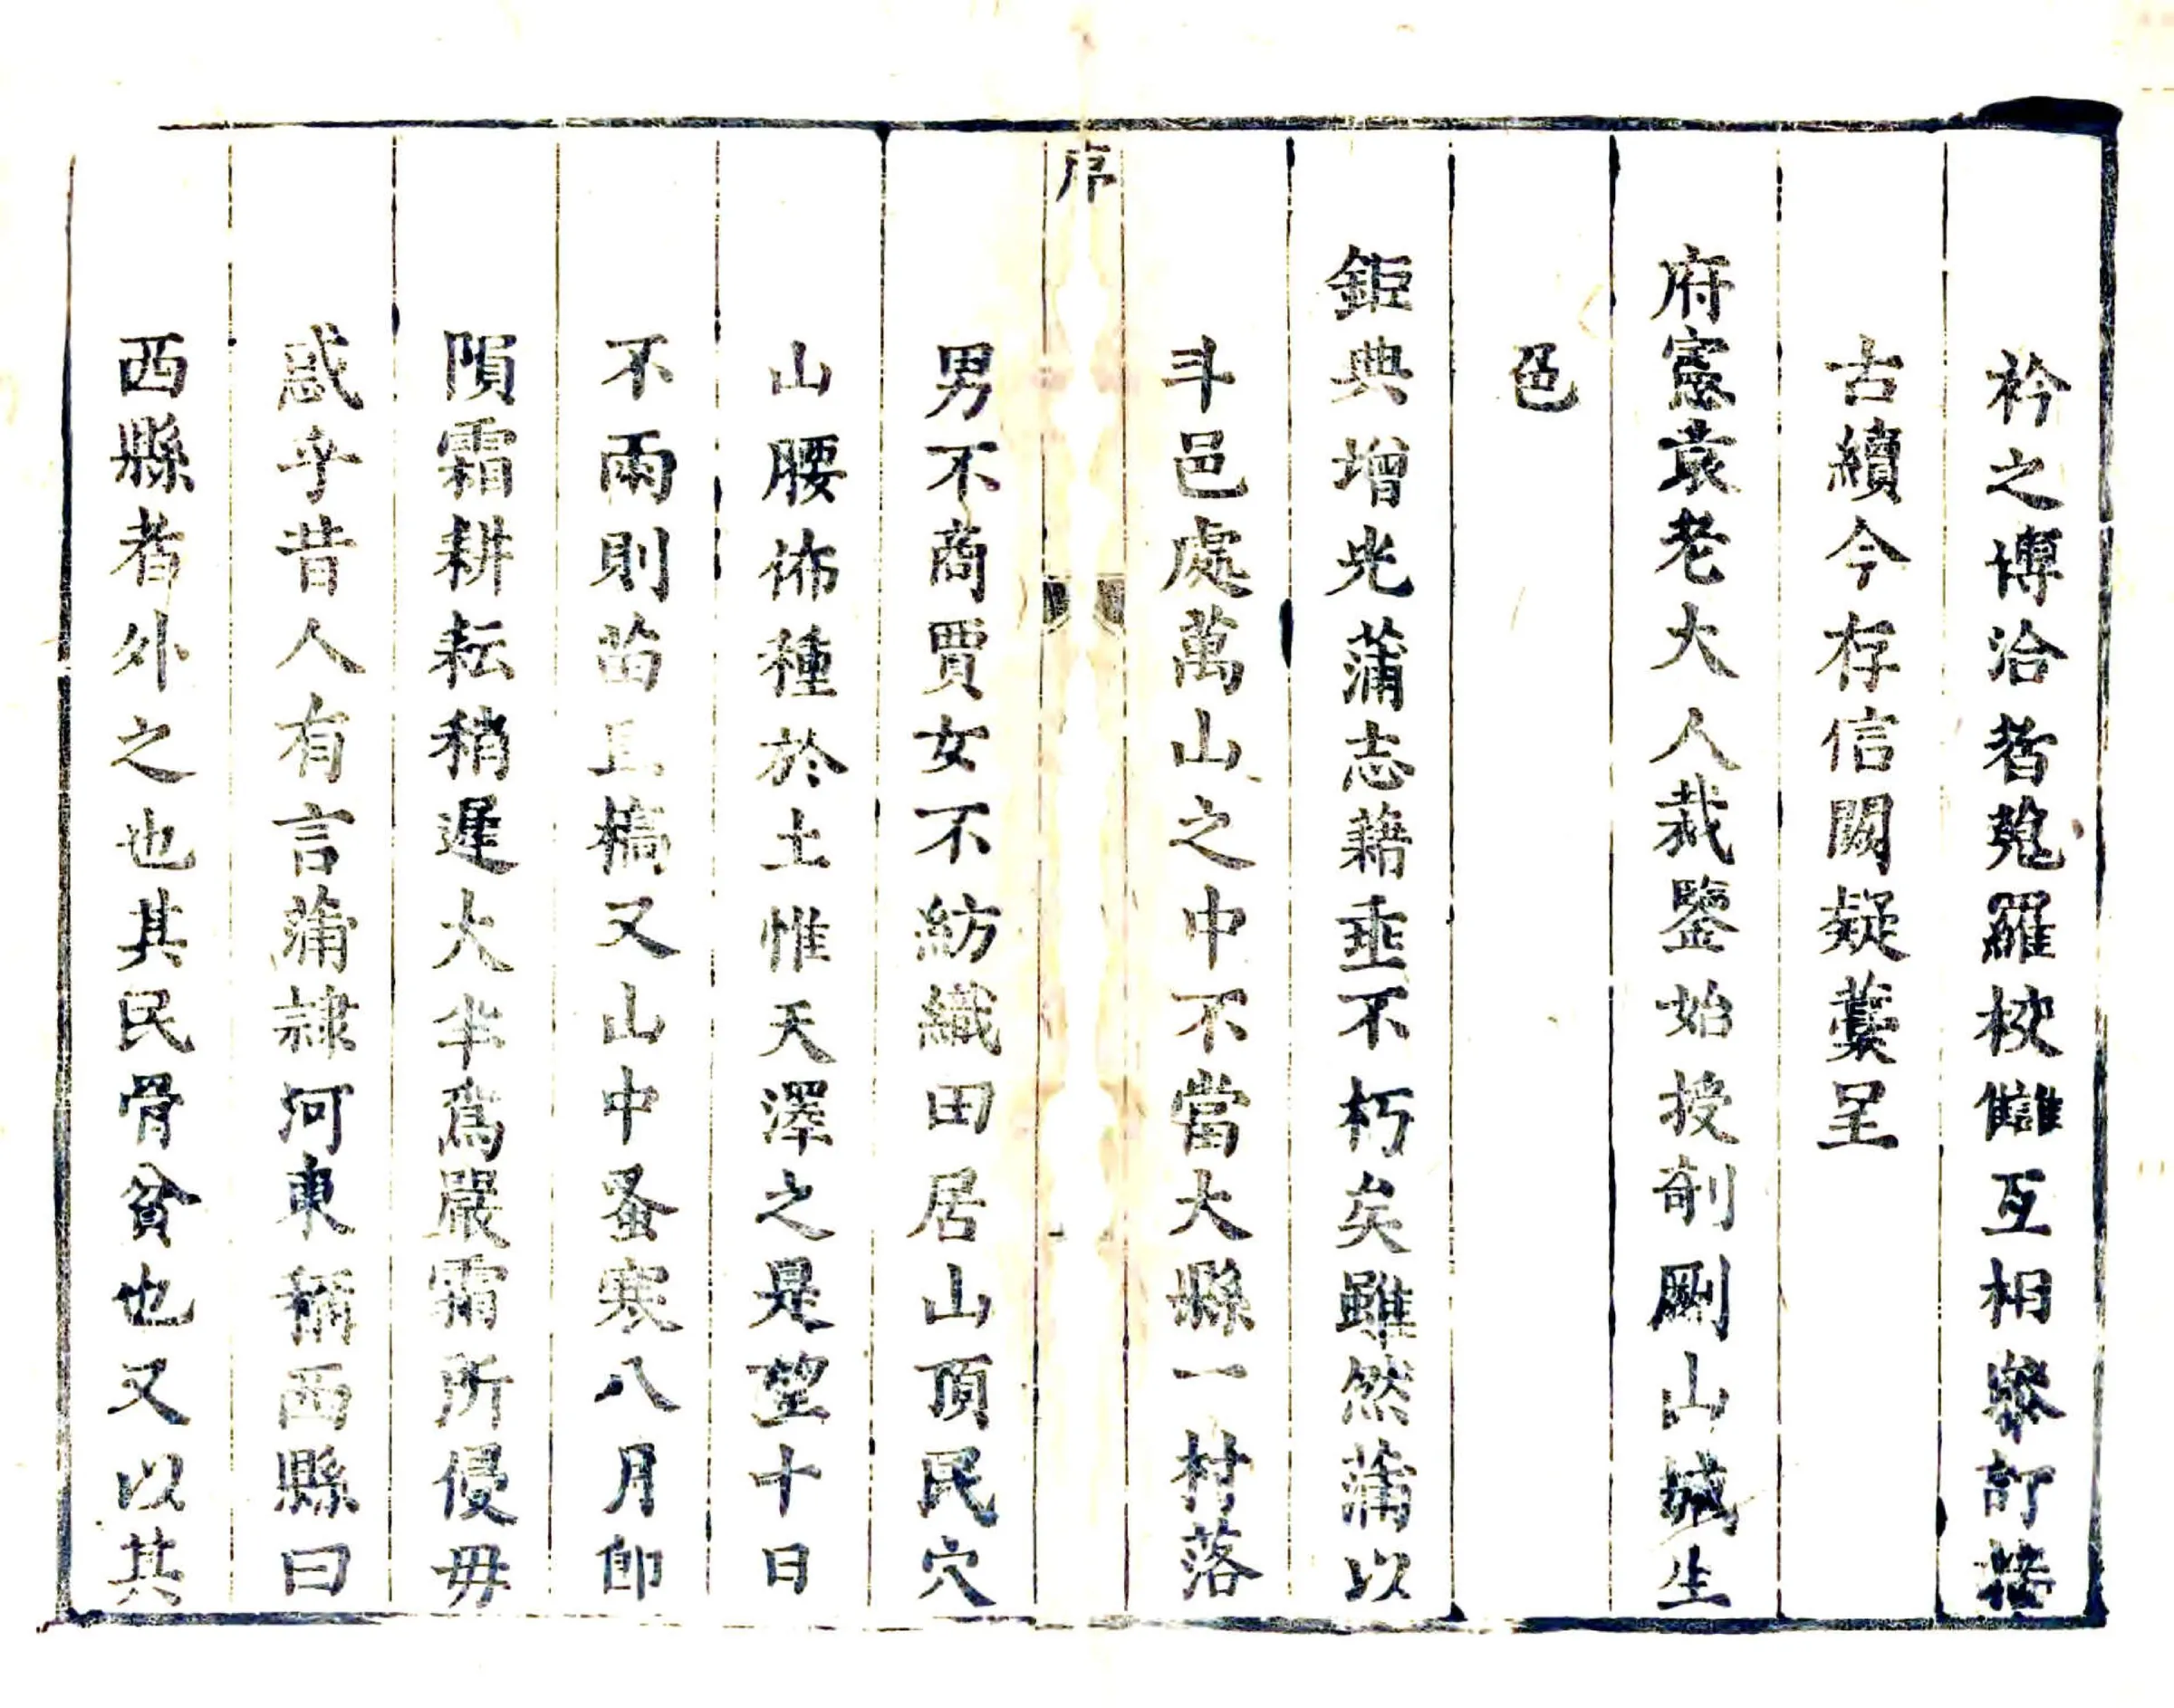 衿之博洽者蒐羅校讎互相叅訂搭
古續今存信闕疑藁呈
府憲袁老大人裁鑒始授剞劂山城生
色
鉅典增光蒲志藉垂不朽矣雖然蒲以
斗邑處萬山之中不當大縣一村落
序
男不商賈女不紡織田居山頂民穴
山腰佈種於土惟天澤之是望十日
不雨則苗且槁又山中蚤寒八月卽
隕霜耕耘稍遲大半爲嚴霜所侵毋
惑乎昔人有言蒲隷河東稱西縣曰
西縣者外之也其民骨貧也又以其